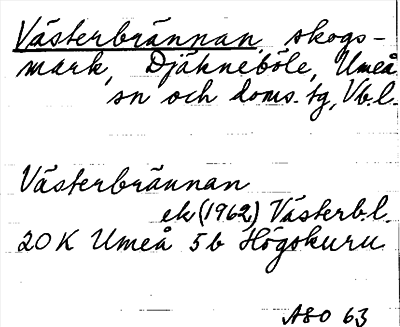 Västerbrännan, skogs-
mark, Djäkneböle, Umeå
sn och doms. tg, Vb.l.
Västerbrännan
ek (1962) Västerb.l.
20K Umeå 5b Högskuru
ASO 63